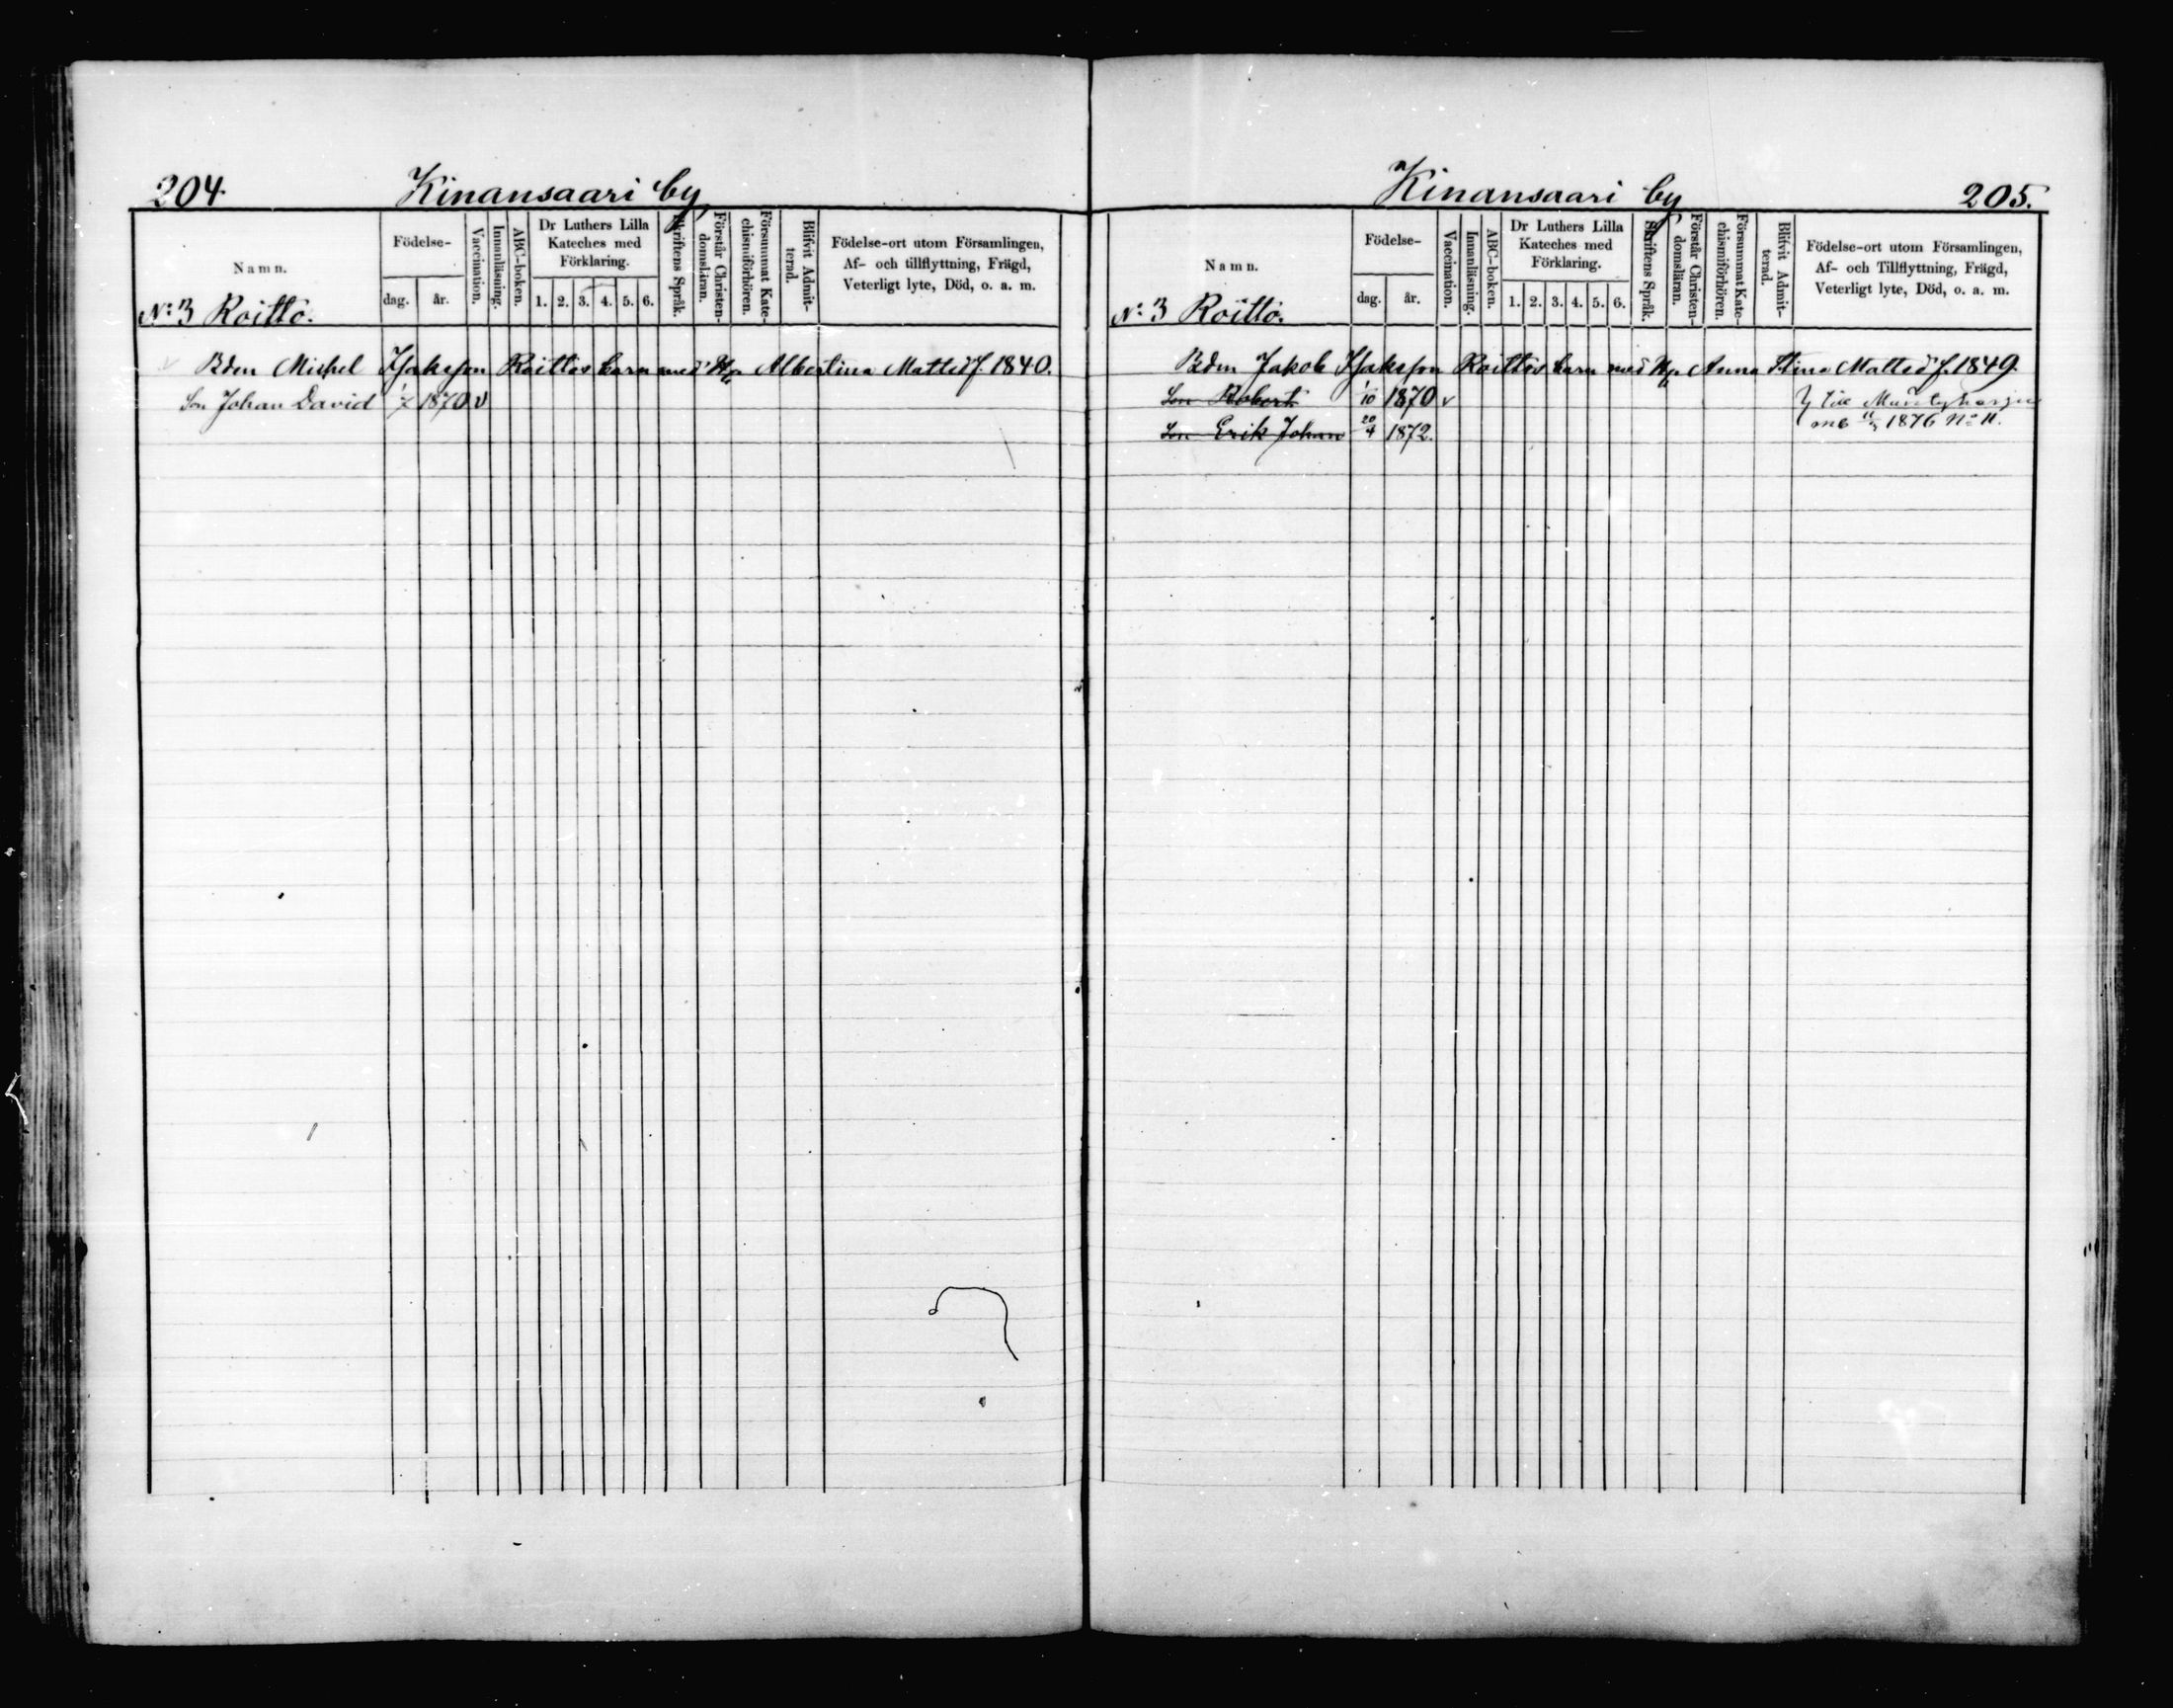 204.
Kinansaari by
Namn.
Födelse-
dag.
år.
Vaccination.
Innanläsning.
ABC-boken.
Dr Luthers Lilla
Kateches med
Förklaring.
1. 2. 3. 4. 5. 6.
Skriftens Språk.
Förstår Christen-
domsläran.
Försummat Kate-
chismiförhören.
Blifvit Admit-
terad.
Födelse-ort utom Församlingen,
Af- och tillflyttning, Frägd,
Veterligt lyte, Död, o. a. m.
No: 3 Roitto.
Bdn Michel Isaksson Roittos barn med Albertina Mattsd f. 1840.
Son Johan David 1870 v
Kinansaari by
205.
Namn.
Födelse-
dag.
år.
Vaccination.
Innanläsning.
ABC-boken.
Dr Luthers Lilla
Kateches med
Förklaring.
1. 2. 3. 4. 5. 6.
Skriftens Språk.
Förstår Christen-
domsläran.
Försummat Kate-
chismiförhören.
Blifvit Admit-
terad.
Födelse-ort utom Församlingen,
Af- och Tillflyttning, Frägd,
Veterligt lyte, Död, o. a. m.
No: 3 Roitto.
Bdn Jakob Isaksson Roittos barn med Anna Stina Mattsd f. 1849.
Son Robert 1/10 1870 v
till
Son Erik Johan 20/4 1872.
1876 No 11.